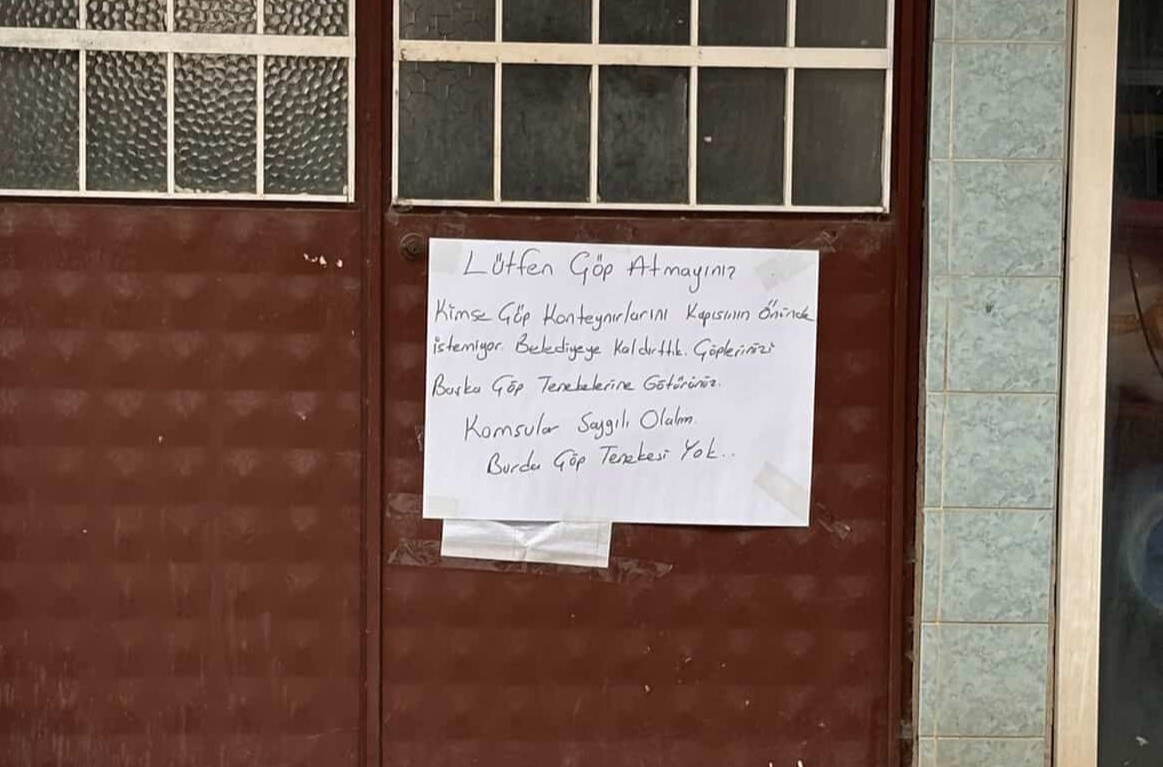 Lütfen Göp Atmayınız
Kimse Göp Konteynırlarını Kapısının Önünde
istemiyor. Belediyeye Kaldırttık. Göplerinizi
Başka Göp Tenekelerine Götürünüz.
Komsular Saygılı Olalım.
Burda Göp Tenekesi Yok..